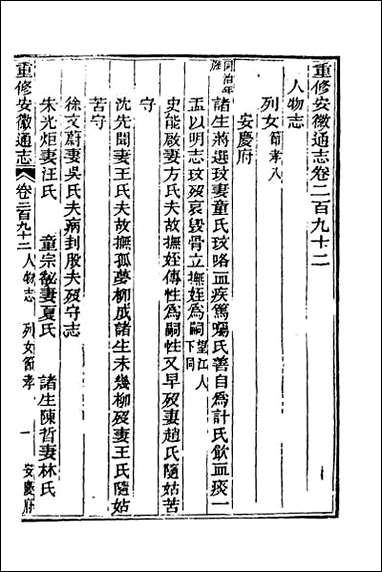 重修安徽通志卷二百九十二
人物志
列女 節孝八
安慶府
同治年旌
諸生蔣選玟妻童氏玟咯血疾篤囑氏善自爲計氏飲血痰一
盂以明志玟歿哀毀骨立撫姪爲嗣 望江人下同
史能啟妻方氏夫故撫姪傳性爲嗣性又早歿妻趙氏隨姑苦
守
沈先聞妻王氏夫故撫孤夢柳成諸生未幾柳歿妻王氏隨姑
苦守
徐文蔚妻吳氏夫病刲股夫歿守志
朱光炬妻汪氏 童宗祕妻夏氏 諸生陳哲妻林氏
重修安徽通志 卷二百九十二 人物志 列女 節孝 一 安慶府